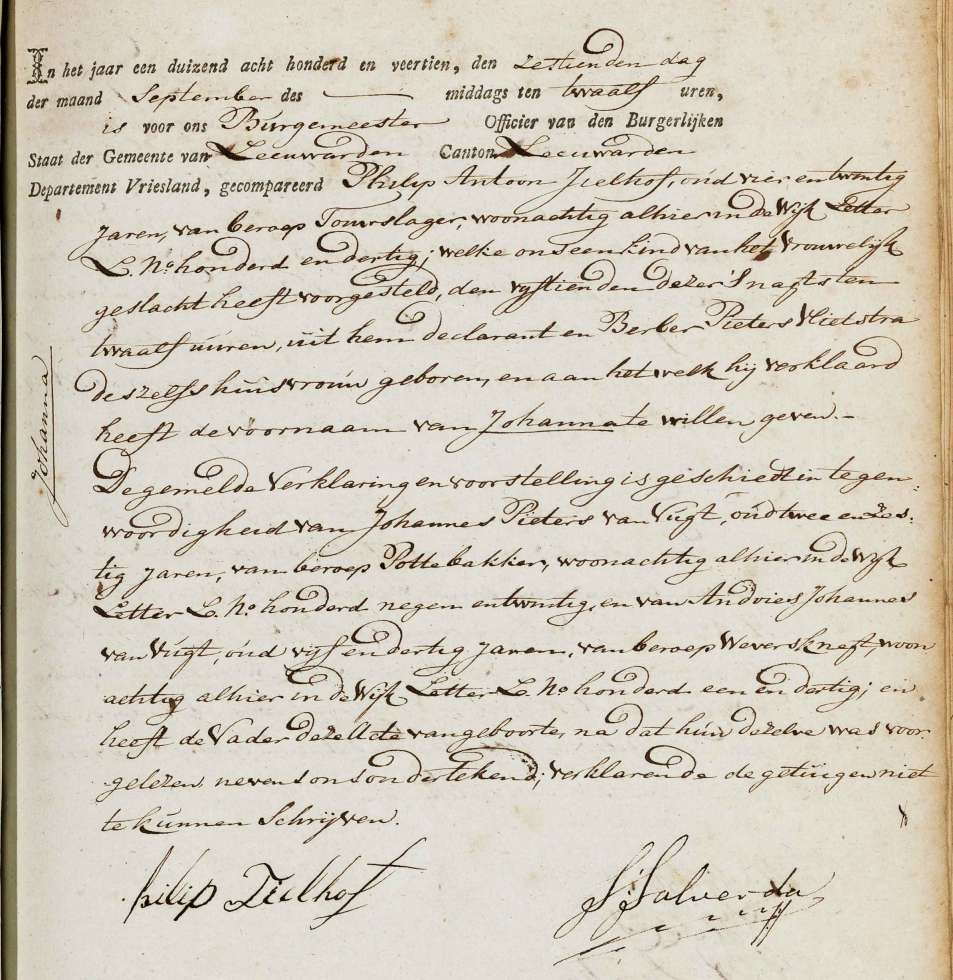 In het jaar een duizend acht honderd en veertien, den zestienden dag
der maand September des — middags ten twaalf uren,
is voor ons Burgemeester Officier van den Burgerlijken
Staat der Gemeente van Leeuwarden Canton Leeuwarden
Departement Vriesland, gecompareerd Philip Antoon Zielhof, oud vier en twintig
Jaren, van beroep Touwslager, woonachtig alhier in de Wijk Letter
L. No. honderd en dertig; welke ons een kind van het vrouwelijk
geslacht heeft voorgesteld, den vijftienden dezer 's nagts ten
twaalf uuren, uit hem declarant en Berber Pieters Vlielstra
deszelfs huisvrouw geboren, en aan het welk hij verklaard
heeft de voornaam van Johanna te willen geven. -
Johanna
De gemelde verklaring en voorstelling is geschiedt in tegen-
woordigheid van Johannes Pieters van Vugt, oud twee en zes-
tig Jaren, van beroep Pottebakker, woonachtig alhier in de Wijk
Letter L. No. honderd negen en twintig, en van Andries Johannes
van Vugt, oud vijf en dertig Jaren, van beroep Weversknegt, woon
achtig alhier in de Wijk Letter L. No. honderd een en dertig; en
heeft de Vader deze Acte van geboorte, na dat hun dezelve was voor-
gelezen nevens ons ondertekend; verklarende de getuigen niet
te kunnen Schrijven.
philip Zielhof
S Salverda